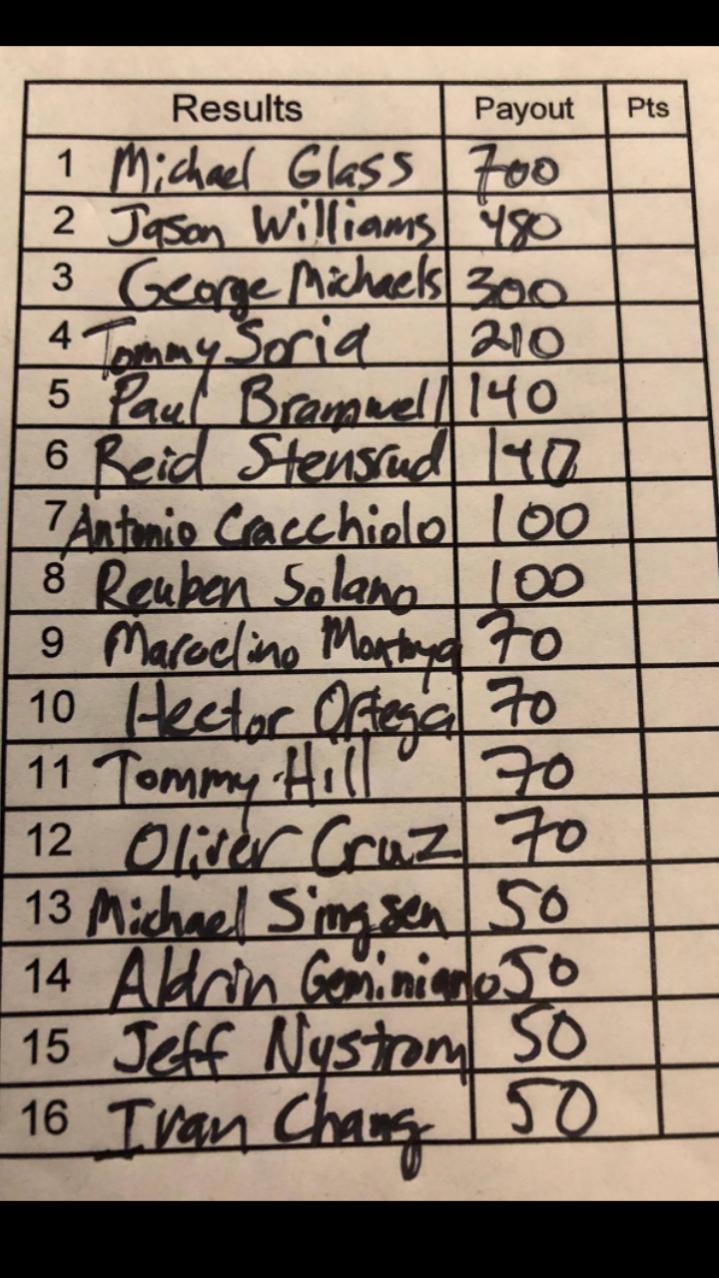 Results Payout Pts
1 Michael Glass 700
2 Jason Williams 480
3 George Michaels 300
4 Tommy Soria 210
5 Paul Bramwell 140
6 Reid Stensrud 140
7 Antonio Cracchiolo 100
8 Reuben Solano 100
9 Marcelino Montoya 70
10 Hector Ortega 70
11 Tommy Hill 70
12 Oliver Cruz 70
13 Michael Singsen 50
14 Aldrin Geminiano 50
15 Jeff Nystrom 50
16 Ivan Chang 50